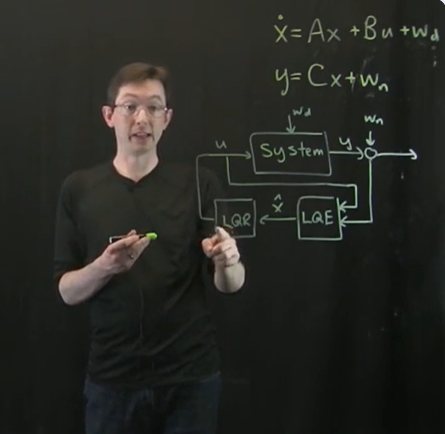 ẋ = Ax + Bu + w_d
y = Cx + w_n
w_d
w_n
u
System
y
x̂
LQR
LQE